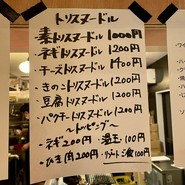 トリスヌードル
素トリスヌードル 1000円
ネギトリスヌードル 1200円
チーズトリスヌードル 1400円
きのこトリスヌードル 1200円
豆腐トリスヌードル 1200円
パクチートリスヌードル 1200円
〜トッピング〜
ネギ 200円 温玉 100円
ひき肉 200円 リゾートご飯 100円